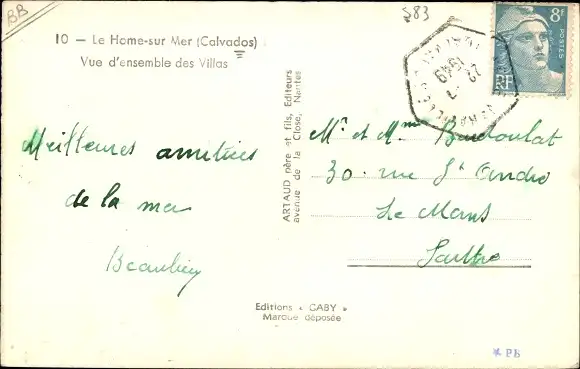 BB
583
10 — Le Home-sur Mer (Calvados)
Vue d'ensemble des Villas
8F
POSTES
RF
22
7
1949
Meilleures amitiés
de la mer
Beaulieu
ARTAUD père et fils, Editeurs
avenue de la Close, Nantes
Mr et Mme Baudoulat
30 rue St André
Le Mans
Sarthe
Editions « GABY »
Marque déposée
* PB